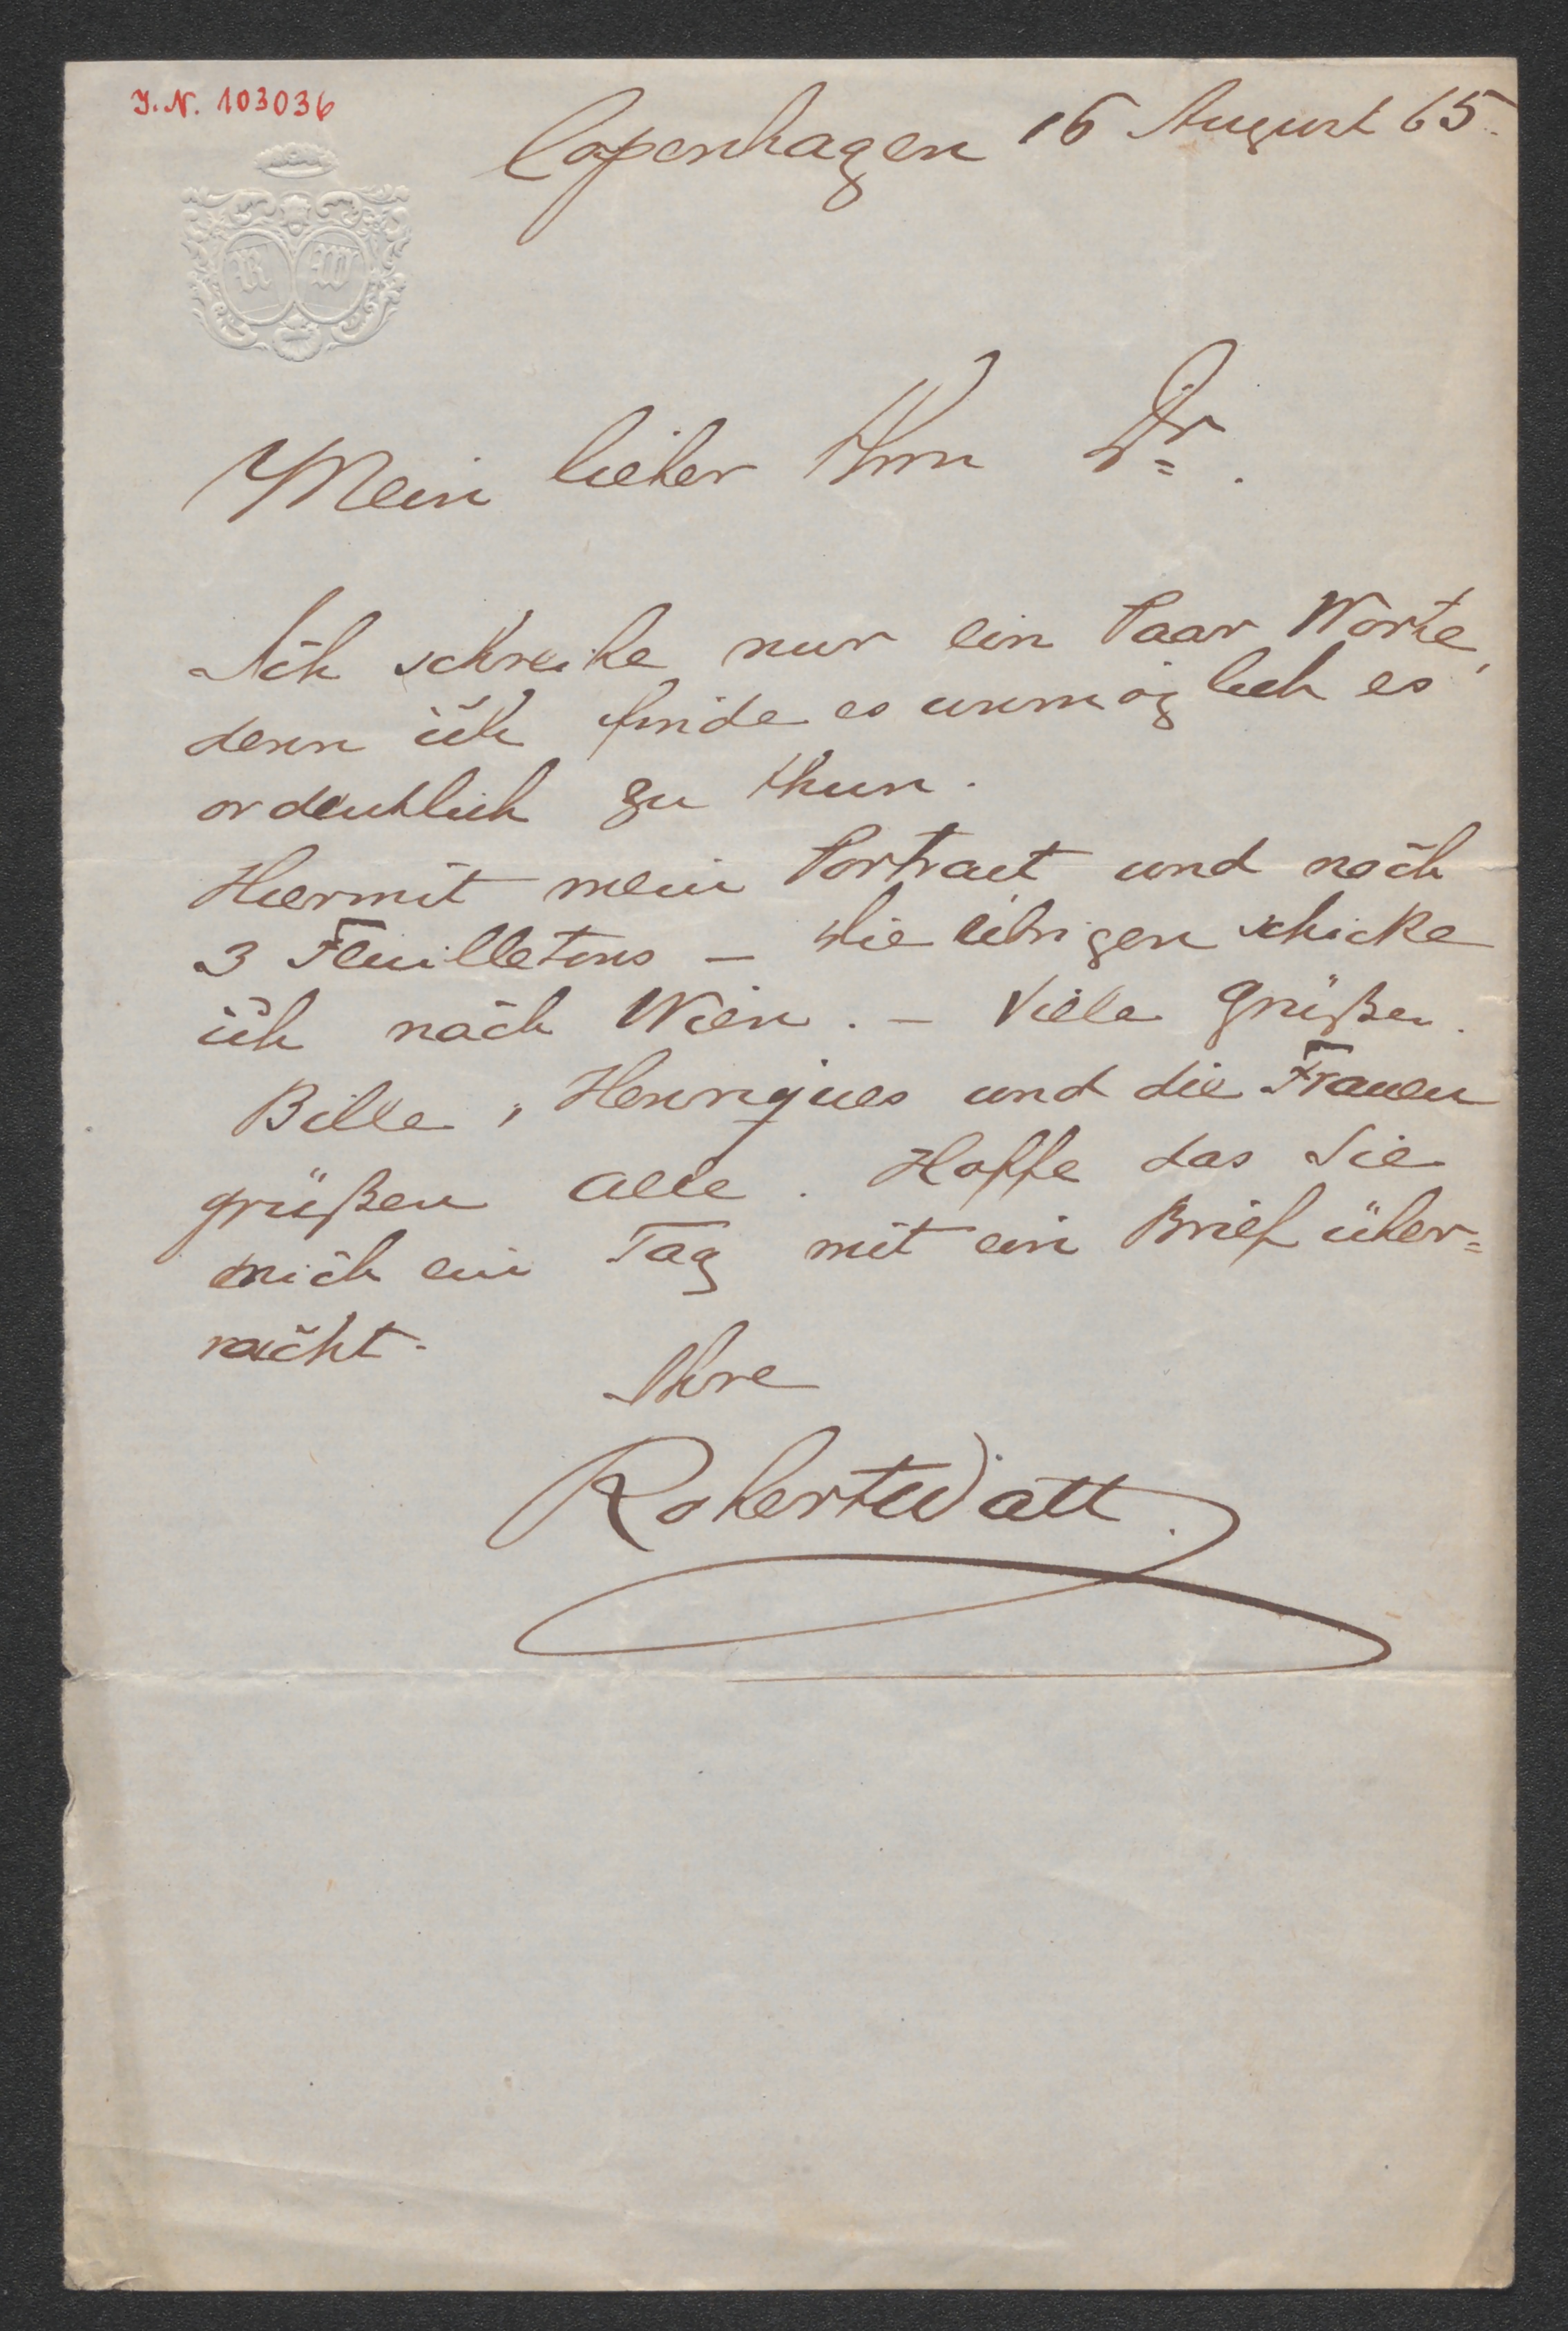 I.N. 103036
Copenhagen 16 August 65.
R W
Mein lieber Hrn Dr.
Ich schreibe nur ein Paar Worte,
denn ich finde es unmöglich es
ordentlich zu thun.
Hiermit mein Portrait und noch
3 Feuilletons – die übrigen schicke
ich nach Wien. – Viele Grüßen.
Bille, Henriques und die Frauen
grüßen alle. Hoffe das Sie
mich ein Tag mit ein Brief über=
racht.
Ihre
Robert Watt.